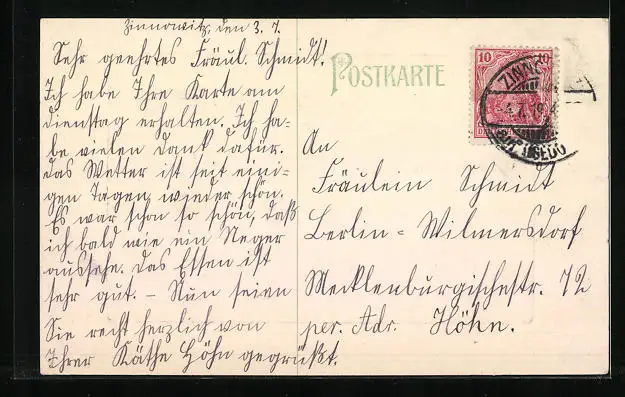 Zinnowitz, den 3. 7.
Sehr geehrtes Fräul. Schmidt!
Ich habe Ihre Karte am
dienstag erhalten. Ich ha-
be vielen Dank dafür.
Das Wetter ist seit eini-
gen Tagen wieder schön.
Es war schon so schön, daß
ich bald wie ein Neger
aussehe. Das Essen ist
sehr gut. – Nun seien
Sie recht herzlich von
Ihrer Käthe Höhn gegrüßt.
POSTKARTE
10 10
ZINNO
4.7.
USEDO
An
Fräulein Schmidt
Berlin = Wilmersdorf
Mecklenburgischestr. 72
per. Adr. Höhn.